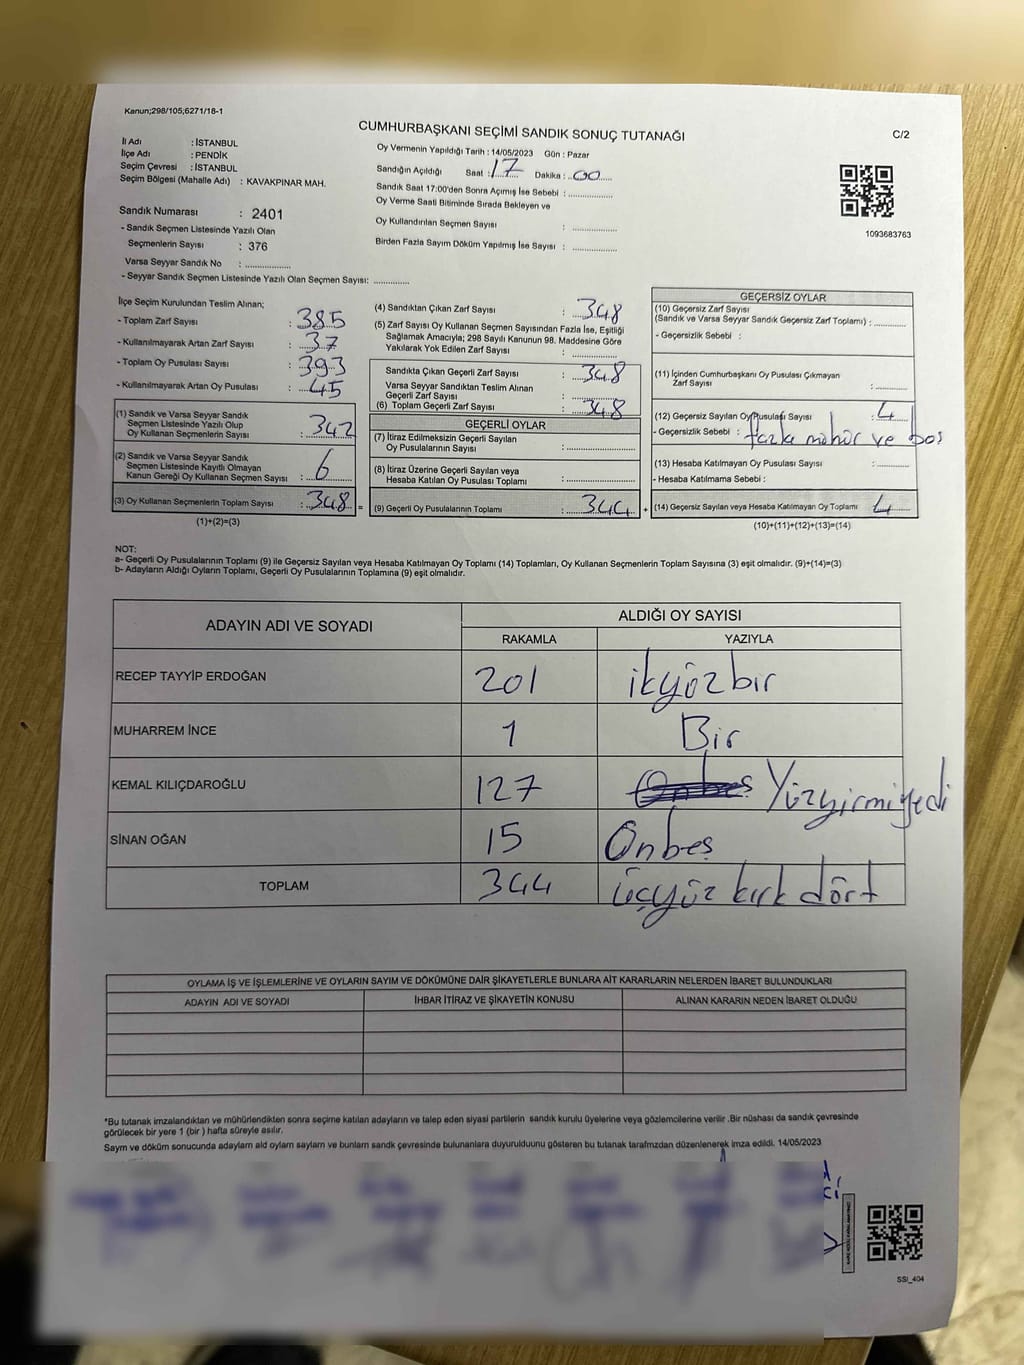 Kanun;298/105;6271/18-1
CUMHURBAŞKANI SEÇİMİ SANDIK SONUÇ TUTANAĞI
C/2
İl Adı : İSTANBUL
İlçe Adı : PENDİK
Seçim Çevresi : İSTANBUL
Seçim Bölgesi (Mahalle Adı) : KAVAKPINAR MAH.
Sandık Numarası : 2401
- Sandık Seçmen Listesinde Yazılı Olan
Seçmenlerin Sayısı : 376
Varsa Seyyar Sandık No : ...............
- Seyyar Sandık Seçmen Listesinde Yazılı Olan Seçmen Sayısı: ............
Oy Vermenin Yapıldığı Tarih : 14/05/2023 Gün : Pazar
Sandığın Açıldığı Saat : 17 Dakika : 00
Sandık Saat 17:00'den Sonra Açımış İse Sebebi : ...............
Oy Verme Saati Bitiminde Sırada Bekleyen ve
Oy Kullandırılan Seçmen Sayısı : ...............
Birden Fazla Sayım Döküm Yapılmış İse Sayısı : ...............
1093683763
İlçe Seçim Kurulundan Teslim Alınan;
- Toplam Zarf Sayısı : 385
- Kullanılmayarak Artan Zarf Sayısı : 37
- Toplam Oy Pusulası Sayısı : 393
- Kullanılmayarak Artan Oy Pusulası : 45
(1) Sandık ve Varsa Seyyar Sandık
Seçmen Listesinde Yazılı Olup
Oy Kullanan Seçmenlerin Sayısı : 342
(2) Sandık ve Varsa Seyyar Sandık
Seçmen Listesinde Kayıtlı Olmayan
Kanun Gereği Oy Kullanan Seçmen Sayısı : 6
(3) Oy Kullanan Seçmenlerin Toplam Sayısı : 348 =
(1)+(2)=(3)
(4) Sandıktan Çıkan Zarf Sayısı : 348
(5) Zarf Sayısı Oy Kullanan Seçmen Sayısından Fazla İse, Eşitliği
Sağlamak Amacıyla; 298 Sayılı Kanunun 98. Maddesine Göre
Yakılarak Yok Edilen Zarf Sayısı : ...............
Sandıkta Çıkan Geçerli Zarf Sayısı : 348
Varsa Seyyar Sandıktan Teslim Alınan
Geçerli Zarf Sayısı : ...............
(6) Toplam Geçerli Zarf Sayısı : 348
GEÇERLİ OYLAR
(7) İtiraz Edilmeksizin Geçerli Sayılan
Oy Pusulalarının Sayısı : ...............
(8) İtiraz Üzerine Geçerli Sayılan veya
Hesaba Katılan Oy Pusulası Toplamı : ...............
(9) Geçerli Oy Pusulalarının Toplamı : 344 +
GEÇERSİZ OYLAR
(10) Geçersiz Zarf Sayısı
(Sandık ve Varsa Seyyar Sandık Geçersiz Zarf Toplamı) : ............
- Geçersizlik Sebebi :
(11) İçinden Cumhurbaşkanı Oy Pusulası Çıkmayan
Zarf Sayısı : ............
(12) Geçersiz Sayılan Oy Pusulası Sayısı : 4
- Geçersizlik Sebebi : fazla mühür ve boş
(13) Hesaba Katılmayan Oy Pusulası Sayısı : ............
- Hesaba Katılmama Sebebi :
(14) Geçersiz Sayılan veya Hesaba Katılmayan Oy Toplamı 4
(10)+(11)+(12)+(13)=(14)
NOT:
a- Geçerli Oy Pusulalarının Toplamı (9) ile Geçersiz Sayılan veya Hesaba Katılmayan Oy Toplamı (14) Toplamları, Oy Kullanan Seçmenlerin Toplam Sayısına (3) eşit olmalıdır. (9)+(14)=(3)
b- Adayların Aldığı Oyların Toplamı, Geçerli Oy Pusulalarının Toplamına (9) eşit olmalıdır.
ADAYIN ADI VE SOYADI ALDIĞI OY SAYISI
RAKAMLA YAZIYLA
RECEP TAYYİP ERDOĞAN 201 ikyüzbir
MUHARREM İNCE 1 Bir
KEMAL KILIÇDAROĞLU 127 Onbeş Yüzyirmiyedi
SİNAN OĞAN 15 Onbeş
TOPLAM 344 üçyüz kırk dört
OYLAMA İŞ VE İŞLEMLERİNE VE OYLARIN SAYIM VE DÖKÜMÜNE DAİR ŞİKAYETLERLE BUNLARA AİT KARARLARIN NELERDEN İBARET BULUNDUKLARI
ADAYIN ADI VE SOYADI İHBAR İTİRAZ VE ŞİKAYETİN KONUSU ALINAN KARARIN NEDEN İBARET OLDUĞU
*Bu tutanak imzalandıktan ve mühürlendikten sonra seçime katılan adayların ve talep eden siyasi partilerin sandık kurulu üyelerine veya gözlemcilerine verilir .Bir nüshası da sandık çevresinde
görülecek bir yere 1 (bir ) hafta süreyle asılır.
Sayım ve döküm sonucunda adayların ald oyların saylam ve bunlarn sandk çevresinde bulunanlara duyurulduunu gösteren bu tutanak tarafmzdan düzenlenerek imza edildi. 14/05/2023
SSI_404